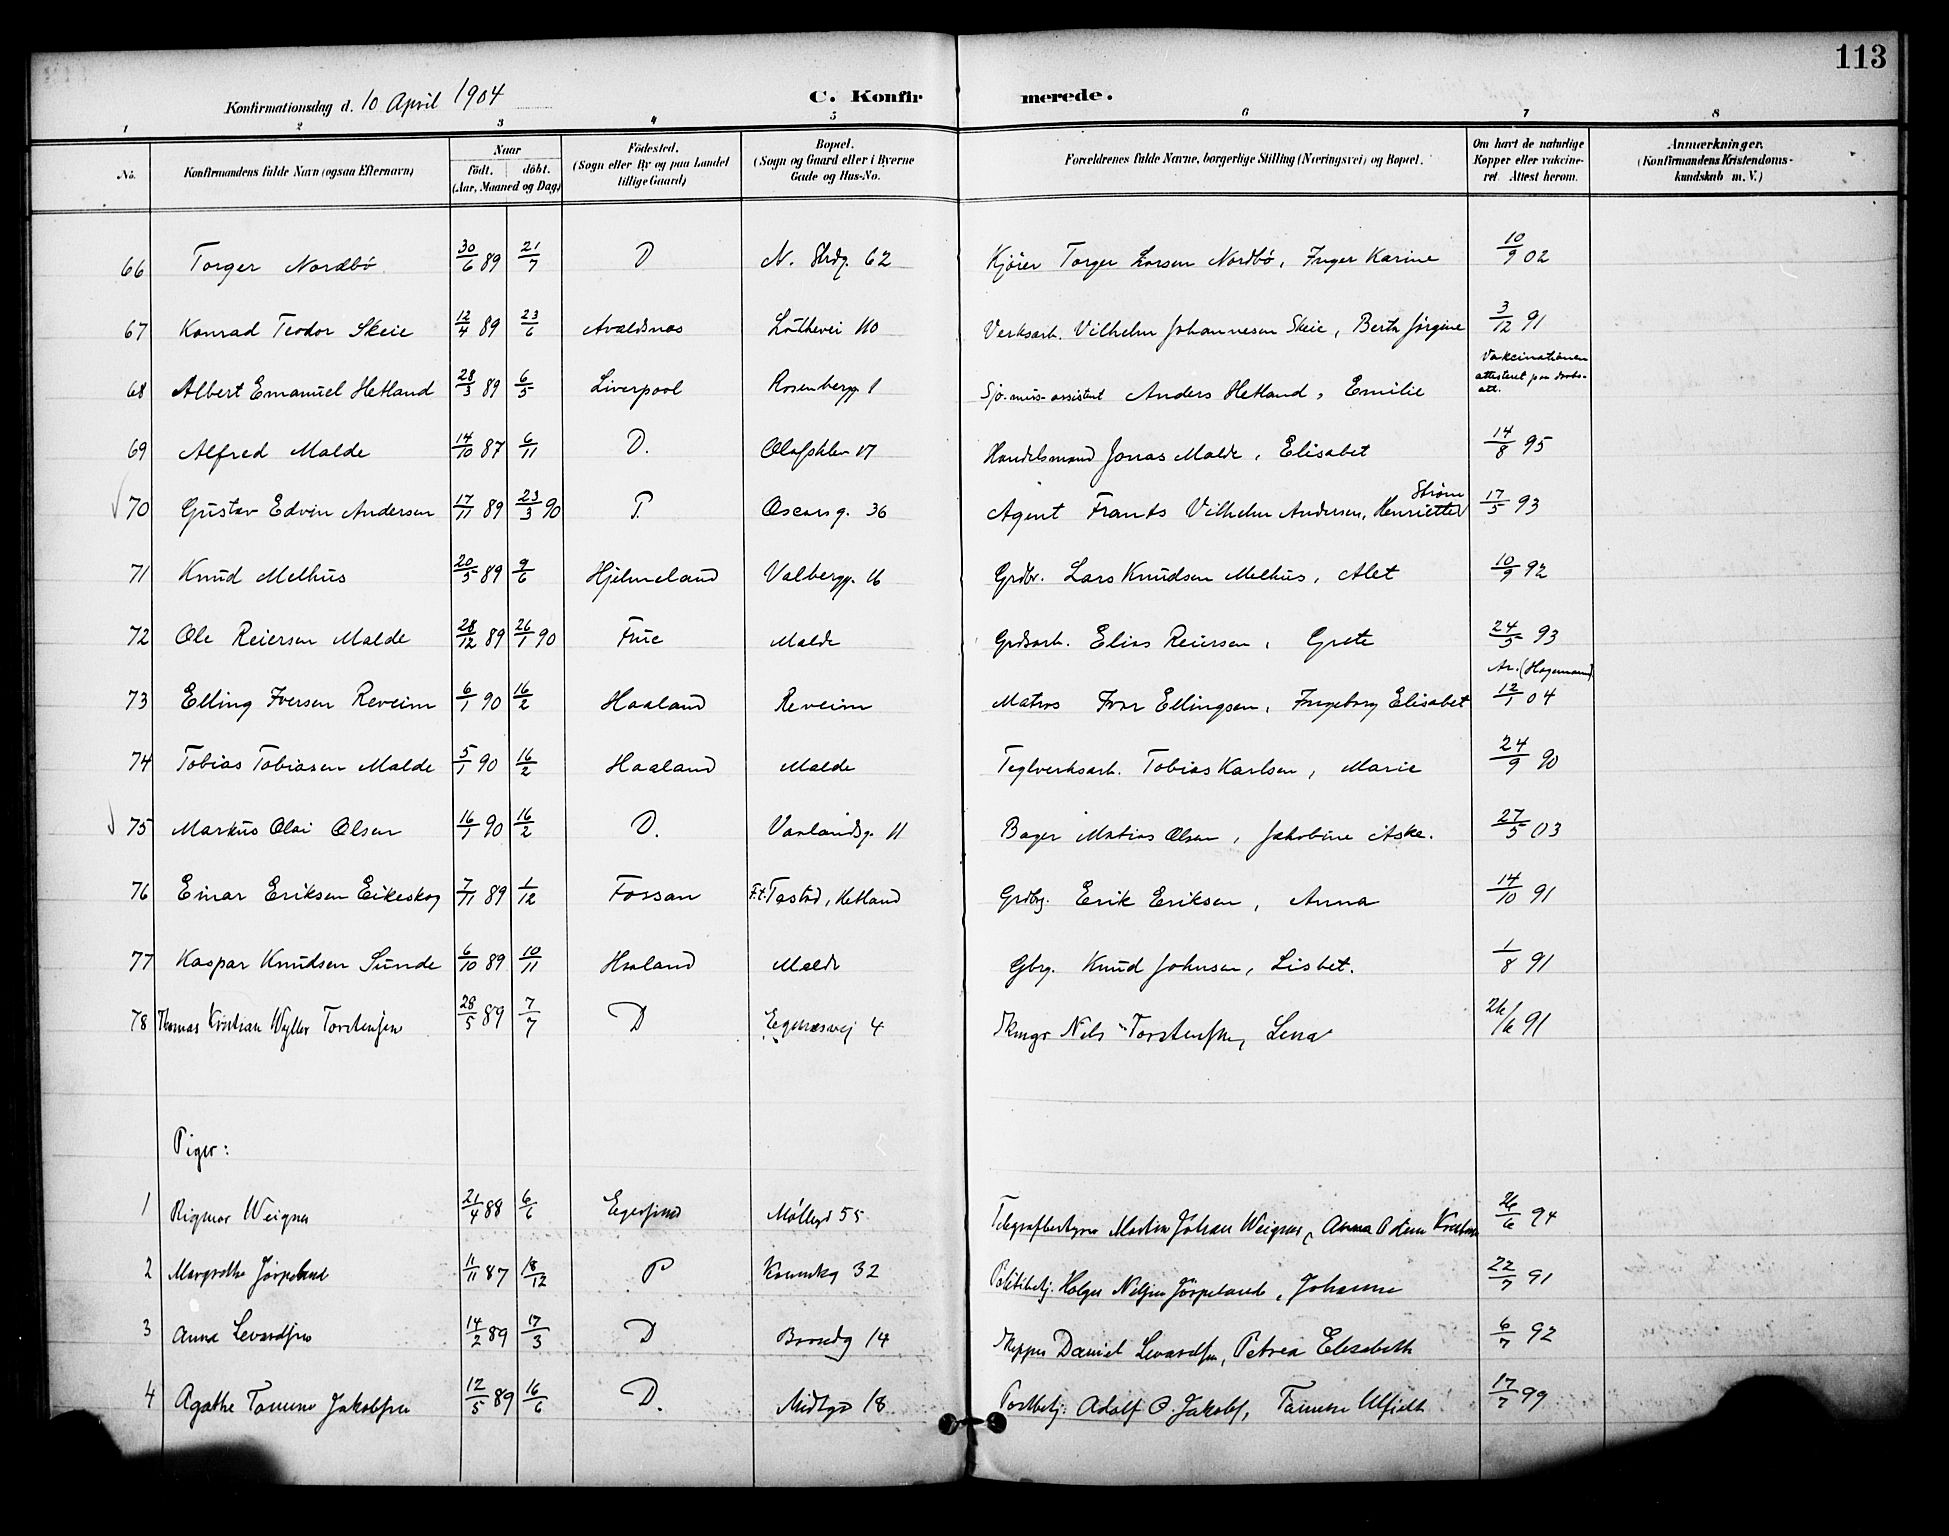 113
Konfirmationsdag d. 10 April 1904 C. Konfirmerede.
1 2 3 4 5 6 7 8
No. Konfirmandens fulde Navn (ogsaa Efternavn) Naar födt. döbt. (Aar, Maaned og Dag) Födested. (Sogn eller By og paa Landet tillige Gaard) Bopæl. (Sogn og Gaard eller i Byerne Gade og Hus-No. Forældrenes fulde Navne, borgerlige Stilling (Næringsvei) og Bopæl. Om havt de naturlige Kopper eller vakcineret. Attest herom. Anmærkninger. (Konfirmandens Kristendomskundskab m. V.)
66 Torger Nordbø 30/6 89 21/7 D N. Strdg. 62 Kjøier Torger Larsen Nordbø, Inger Karine 10/9 02
67 Konrad Teodor Skeie 12/4 89 23/6 Avaldsnas 110 Verksarb. Vilhelm Johannesen Skeie, Berta Jørgine 3/12 91
68 Albert Emanuel Hetland 28/3 89 6/5 Liverpool Rosenbergg. 1 Sjø.mis-assistent Anders Hetland, Emilie Vakcinationen attesteret paa att.
69 Alfred Malde 14/10 87 6/11 D. Olafsklev 17 Handelsmand Jonas Malde, Elisabet 14/8 95
70 Gustav Edvin Andersen 17/11 89 23/3 90 P. Oscarsg. 36 Agent Frants Vilhelm Andersen, Henriette Strøm 17/5 93
71 Knud Melhus 20/5 89 9/6 Hjelmeland Valbergg. 16 Grdbr. Lars Knudsen Melhus, Alet 10/9 92
72 Ole Reiersen Malde 28/12 89 26/1 90 Frue Malde Grdsarb. Elias Reiersen, Grete 24/5 93
73 Elling Iversen Reveim 6/1 90 16/2 Haaland Reveim Matros Ivar Ellingsen, Ingeborg Elisabet At. (Hagemand) 12/1 04
74 Tobias Tobiasen Malde 5/1 90 16/2 Haaland Malde Teglverksarb. Tobias Karlsen, Marie 24/9 90
75 Markus Olai Olsen 16/1 90 16/2 D. Vaalandsg. 11 Bager Matias Olsen, Jakobine Aske. 27/5 03
76 Einar Eriksen Eikeskog 7/11 89 1/12 Fossan F.t. Tastad, Hetland Grdbg. Erik Eriksen, Anna 14/10 91
77 Kaspar Knudsen Sunde 6/10 89 10/11 Haaland Malde Gbrg. Knud Johnsen, Lisbet. 1/8 91
78 Thomas Kristian Wyller Torstensen 28/5 89 7/7 D Egenæsvej 4 Nils Torstensen, Lena 26/6 91
Piger:
1 Rigmor Weigner 21/4 88 6/6 Egersund Møllegd 55 Telegrafbestyrer Martin Johan Weigner, Anna 26/6 94
2 Margrethe Jørpeland 11/11 87 18/12 P Kannikg 32 Politibetj. Holger Nilsen Jørpeland, Johanne 22/7 91
3 Anna Levardsen 14/2 89 17/3 D Bredg 14 Skipper Daniel Levardsen, Petrea Elisabeth 6/7 92
4 Agathe Tomine Jakobsen 12/5 89 16/6 D. Midtgd 18 Postbetj. Adolf C. Jakobs, Tomine Ulfseth 17/7 99